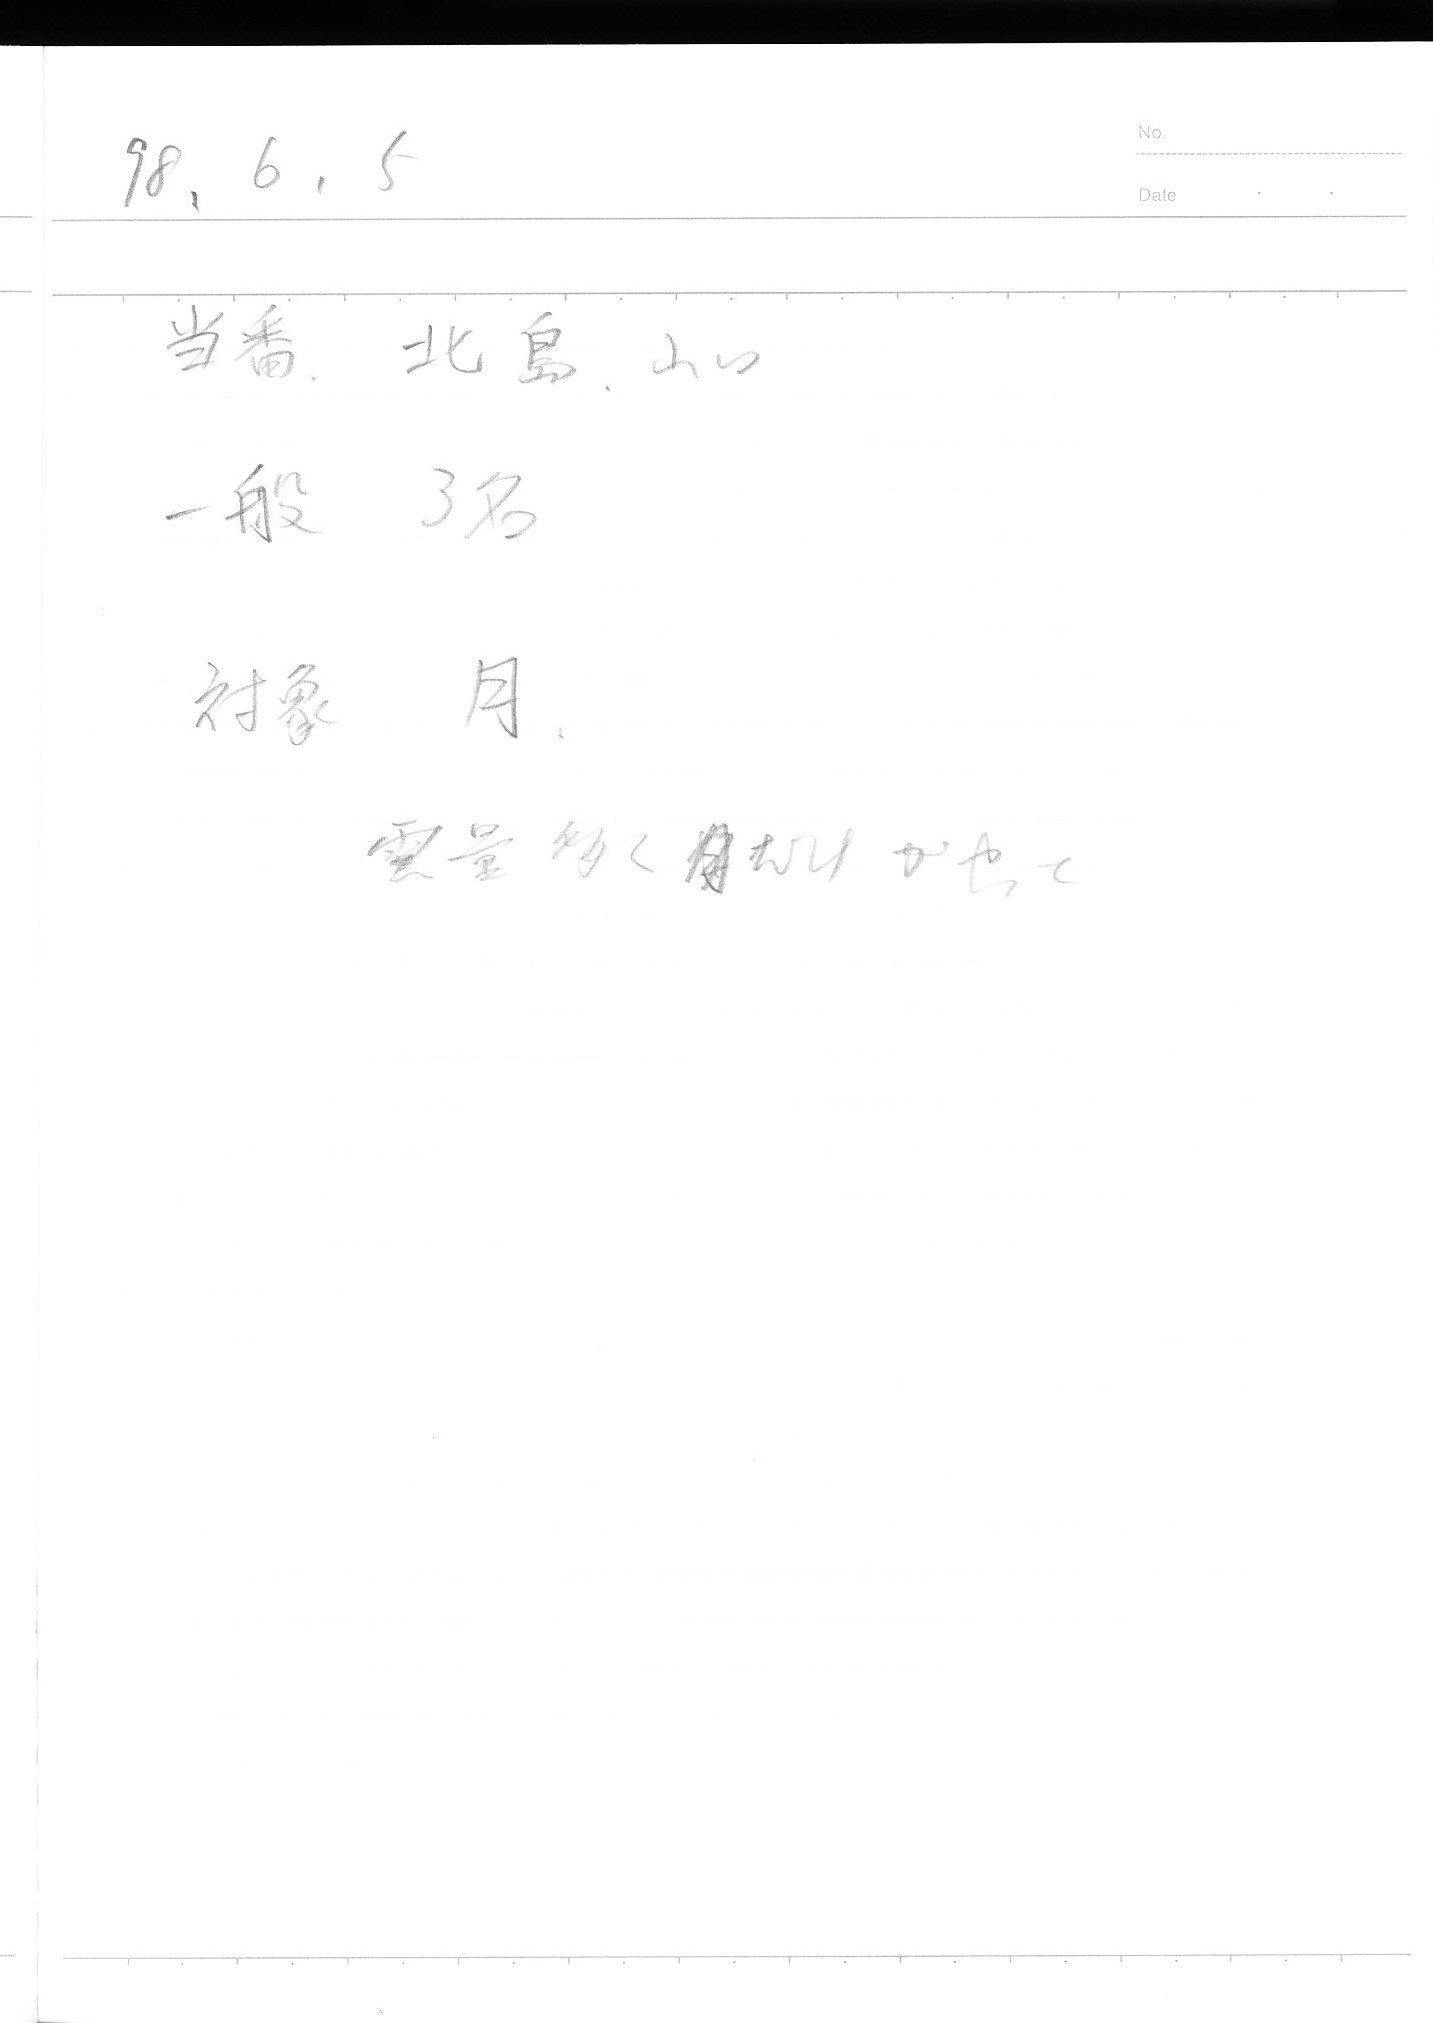 98. 6. 5
No.
Date
当番. 北島. 山口
一般 3名
対象 月.
雲量多く月だけが